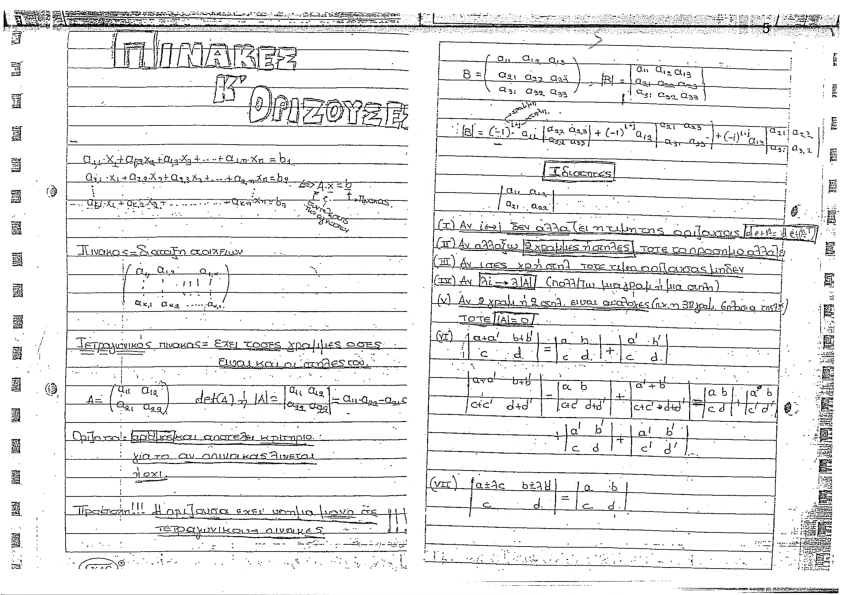 ΠΙΝΑΚΕΣ
Κ' ΟΡΙΖΟΥΣΕΣ
a₁₁·x₁+a₁₂x₂+a₁₃x₃+.....+a₁ₙxₙ=b₁
a₂₁·x₁+a₂₂x₂+a₂₃x₃+.....+a₂ₙxₙ=b₂
⇔ A·x=b
Πίνακας = διάταξη στοιχείων
Τετραγωνικός πινακας = έχει τόσες γραμμές όσες
ειναι και οι στήλες του.
A = (a₁₁ a₁₂
a₂₁ a₂₂) det(A) ή |A| = |a₁₁ a₁₂
a₂₁ a₂₂| = a₁₁·a₂₂-a₂₁
αριθμος και αποτελει κριτηριο
για το αν ο πινακας λινεται
ή οχι.
Προσοχη!!! Η οριζουσα εχει νοημα μονο
τετραγωνικους πινακες !!!
5
B = (a₁₁ a₁₂ a₁₃
a₂₁ a₂₂ a₂₃
a₃₁ a₃₂ a₃₃) , |B| = |a₁₁ a₁₂ a₁₃
a₂₁ a₂₂ a₂₃
a₃₁ a₃₂ a₃₃|
|B| = (-1)ⁱ⁺ʲ a₁₁ |a₂₂ a₂₃
a₃₂ a₃₃| + (-1)ⁱ⁺ʲ a₁₂ |a₂₁ a₂₃
a₃₁ a₃₃| + (-1)ⁱ⁺ʲ a₁₃ |a₂₁ a₂₂
a₃₁ a₃₂|
Ιδιοτητες
|a₁₁ a₁₂
a₂₁ a₂₂|
(I) Αν i↔j δεν αλλαζει η τιμη της οριζουσας
(II) Αν αλλαξω 2 γραμμες ή στηλες τοτε το προσημο αλλαζει
(III) Αν ισες γρ ή στηλ τοτε τιμη οριζουσας μηδεν
(IV) Αν λi → λ|A| (πολ/ζω μια γραμ ή μια στηλη)
(V) Αν 2 γραμ ή 2 στηλ. ειναι αναλογες
τοτε |A|=0
(VI) |a+a' b+b'
c d| = |a b
c d| + |a' b'
c d|
|a+a' b+b'
c+c' d+d'| = |a b
c+c' d+d'| + |a' b'
c+c' d+d'| = |a b
c d| + |a b
c' d'|
+ |a' b'
c d| + |a' b'
c' d'|
(VII) |a±λc b±λd
c d| = |a b
c d|